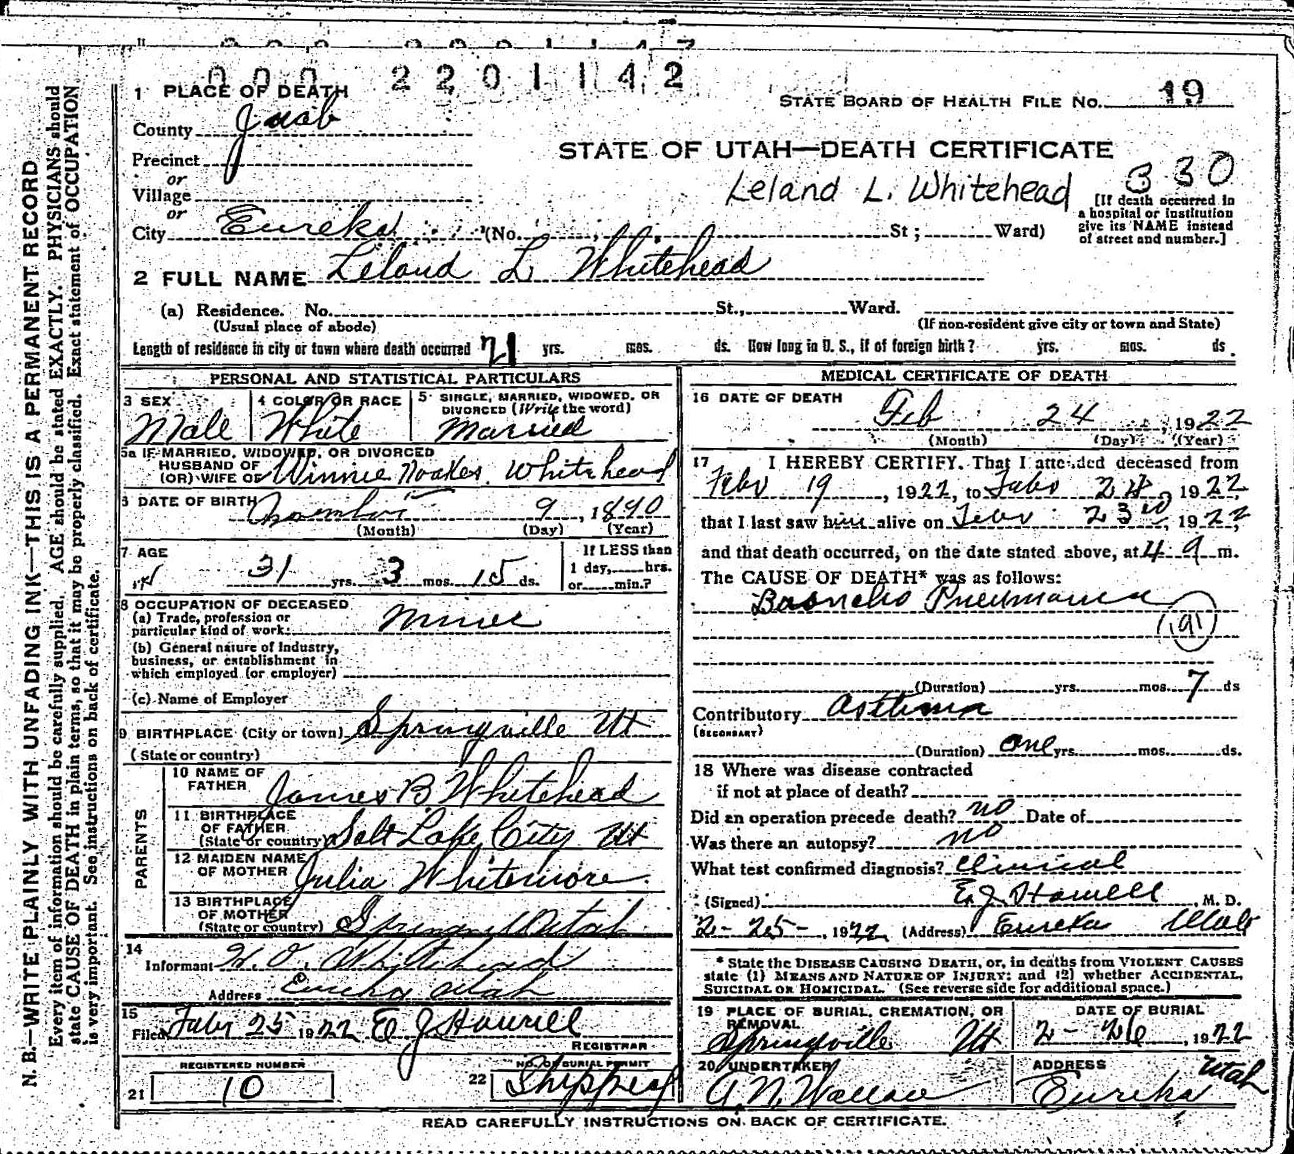 000 2201142
1 PLACE OF DEATH
STATE BOARD OF HEALTH FILE No. 19
County Juab
Precinct
or
STATE OF UTAH—DEATH CERTIFICATE
Village
Leland L. Whitehead 330
or
[If death occurred in
a hospital or institution
give its NAME instead
of street and number.]
City Eureka (No. St; Ward)
2 FULL NAME Leland L. Whitehead
(a) Residence. No. St., Ward.
(Usual place of abode) (If non-resident give city or town and State)
Length of residence in city or town where death occurred 21 yrs. mos. ds. How long in U. S., if of foreign birth? yrs. mos. ds.
PERSONAL AND STATISTICAL PARTICULARS
3 SEX Male
4 COLOR OR RACE White
5 SINGLE, MARRIED, WIDOWED, OR
DIVORCED (Write the word)
Married
5a IF MARRIED, WIDOWED, OR DIVORCED
HUSBAND OF
(OR) WIFE OF Winnie Noakes Whitehead
6 DATE OF BIRTH 9, 1890
(Month) (Day) (Year)
7 AGE
31 yrs. 3 mos. 15 ds.
If LESS than
1 day, hrs.
or min.?
8 OCCUPATION OF DECEASED
(a) Trade, profession or
particular kind of work: Miner
(b) General nature of Industry,
business, or establishment in
which employed (or employer)
(c) Name of Employer
9 BIRTHPLACE (City or town) Springville Ut
(State or country)
PARENTS
10 NAME OF
FATHER James B Whitehead
11 BIRTHPLACE
OF FATHER
(State or country) Salt Lake City Ut
12 MAIDEN NAME
OF MOTHER Julia Whitemore
13 BIRTHPLACE
OF MOTHER
(State or country) Utah
14
Informant Whitehead
Address Eureka Utah
15
Filed Febr 25 1922 E J Howell
REGISTRAR
REGISTERED NUMBER
21 10
NO. OF BURIAL PERMIT
22 Shipped
MEDICAL CERTIFICATE OF DEATH
16 DATE OF DEATH
Feb 24, 1922
(Month) (Day) (Year)
17 I HEREBY CERTIFY. That I attended deceased from
Febr 19, 1922, to Febr 24, 1922,
that I last saw him alive on Febr 23rd, 1922,
and that death occurred, on the date stated above, at 4 a m.
The CAUSE OF DEATH* was as follows:
Broncho Pneumonia
(191)
(Duration) yrs. mos. 7 ds
Contributory Asthma
(SECONDARY)
(Duration) one yrs. mos. ds.
18 Where was disease contracted
if not at place of death?
Did an operation precede death? no Date of
Was there an autopsy? no
What test confirmed diagnosis? Clinical
(Signed) E. J. Howell, M. D.
2-25-, 1922 (Address) Eureka Utah
* State the DISEASE CAUSING DEATH, or, in deaths from VIOLENT CAUSES
state (1) MEANS AND NATURE OF INJURY; and (2) whether ACCIDENTAL,
SUICIDAL OR HOMICIDAL. (See reverse side for additional space.)
19 PLACE OF BURIAL, CREMATION, OR
REMOVAL
Springville Ut
DATE OF BURIAL
2-26, 1922
20 UNDERTAKER
A. N. Wallace
ADDRESS
Eureka Utah
READ CAREFULLY INSTRUCTIONS ON BACK OF CERTIFICATE.
N. B.—WRITE PLAINLY WITH UNFADING INK—THIS IS A PERMANENT RECORD
Every item of information should be carefully supplied. AGE should be stated EXACTLY. PHYSICIANS should
state CAUSE OF DEATH in plain terms, so that it may be properly classified. Exact statement of OCCUPATION
is very important. See instructions on back of certificate.